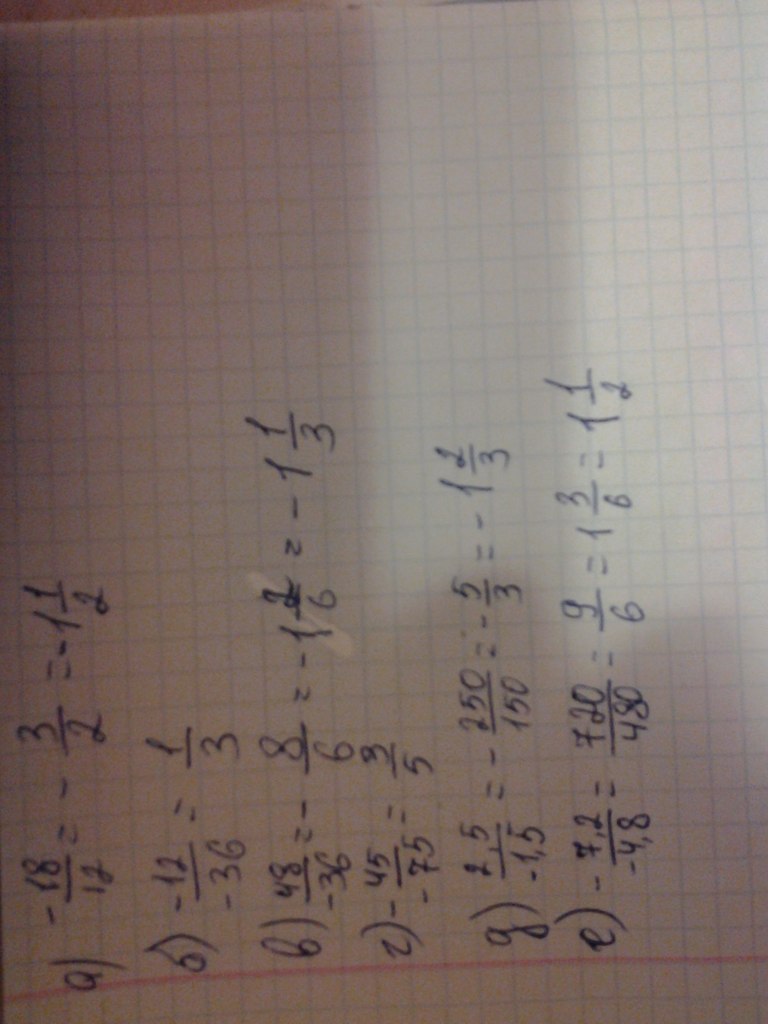 а) -18/12 = - 3/2 = -1 1/2
б) -12/-36 = 1/3
в) 48/-36 = - 8/6 = -1 2/6 = -1 1/3
г) -45/-75 = 3/5
д) 2,5/-1,5 = - 250/150 = - 5/3 = -1 2/3
е) -7,2/-4,8 = 720/480 = 9/6 = 1 3/6 = 1 1/2